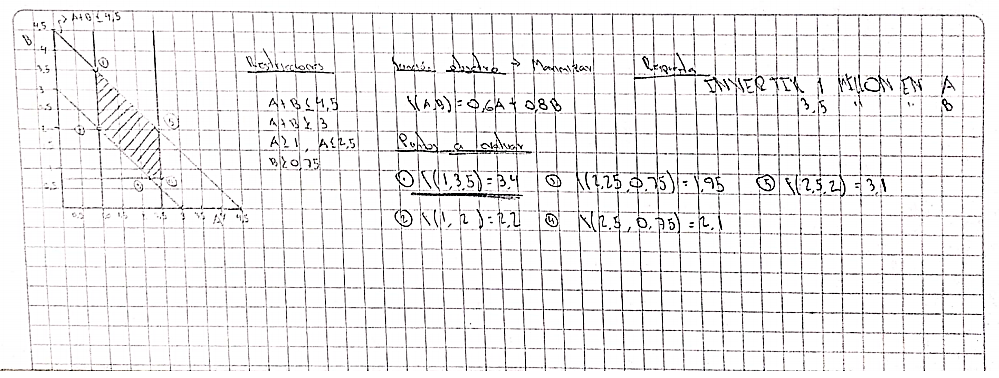 4,5 → A+B ≤ 4,5
B
4
3,5
3
Restricciones
A+B ≤ 4,5
A+B ≥ 3
A ≥ 1, A ≤ 2,5
B ≥ 0,75
Función objetivo → Maximizar
f(A,B) = 0,6A + 0,8B
Puntos a evaluar
① f(1,3,5) = 3,4 ③ f(2,25,0,75) = 1,95 ⑤ f(2,5,2) = 3,1
② f(1,2) = 2,2 ④ f(2,5,0,75) = 2,1
Respuesta
INVERTIR 1 MILLON EN A
3,5 " " B